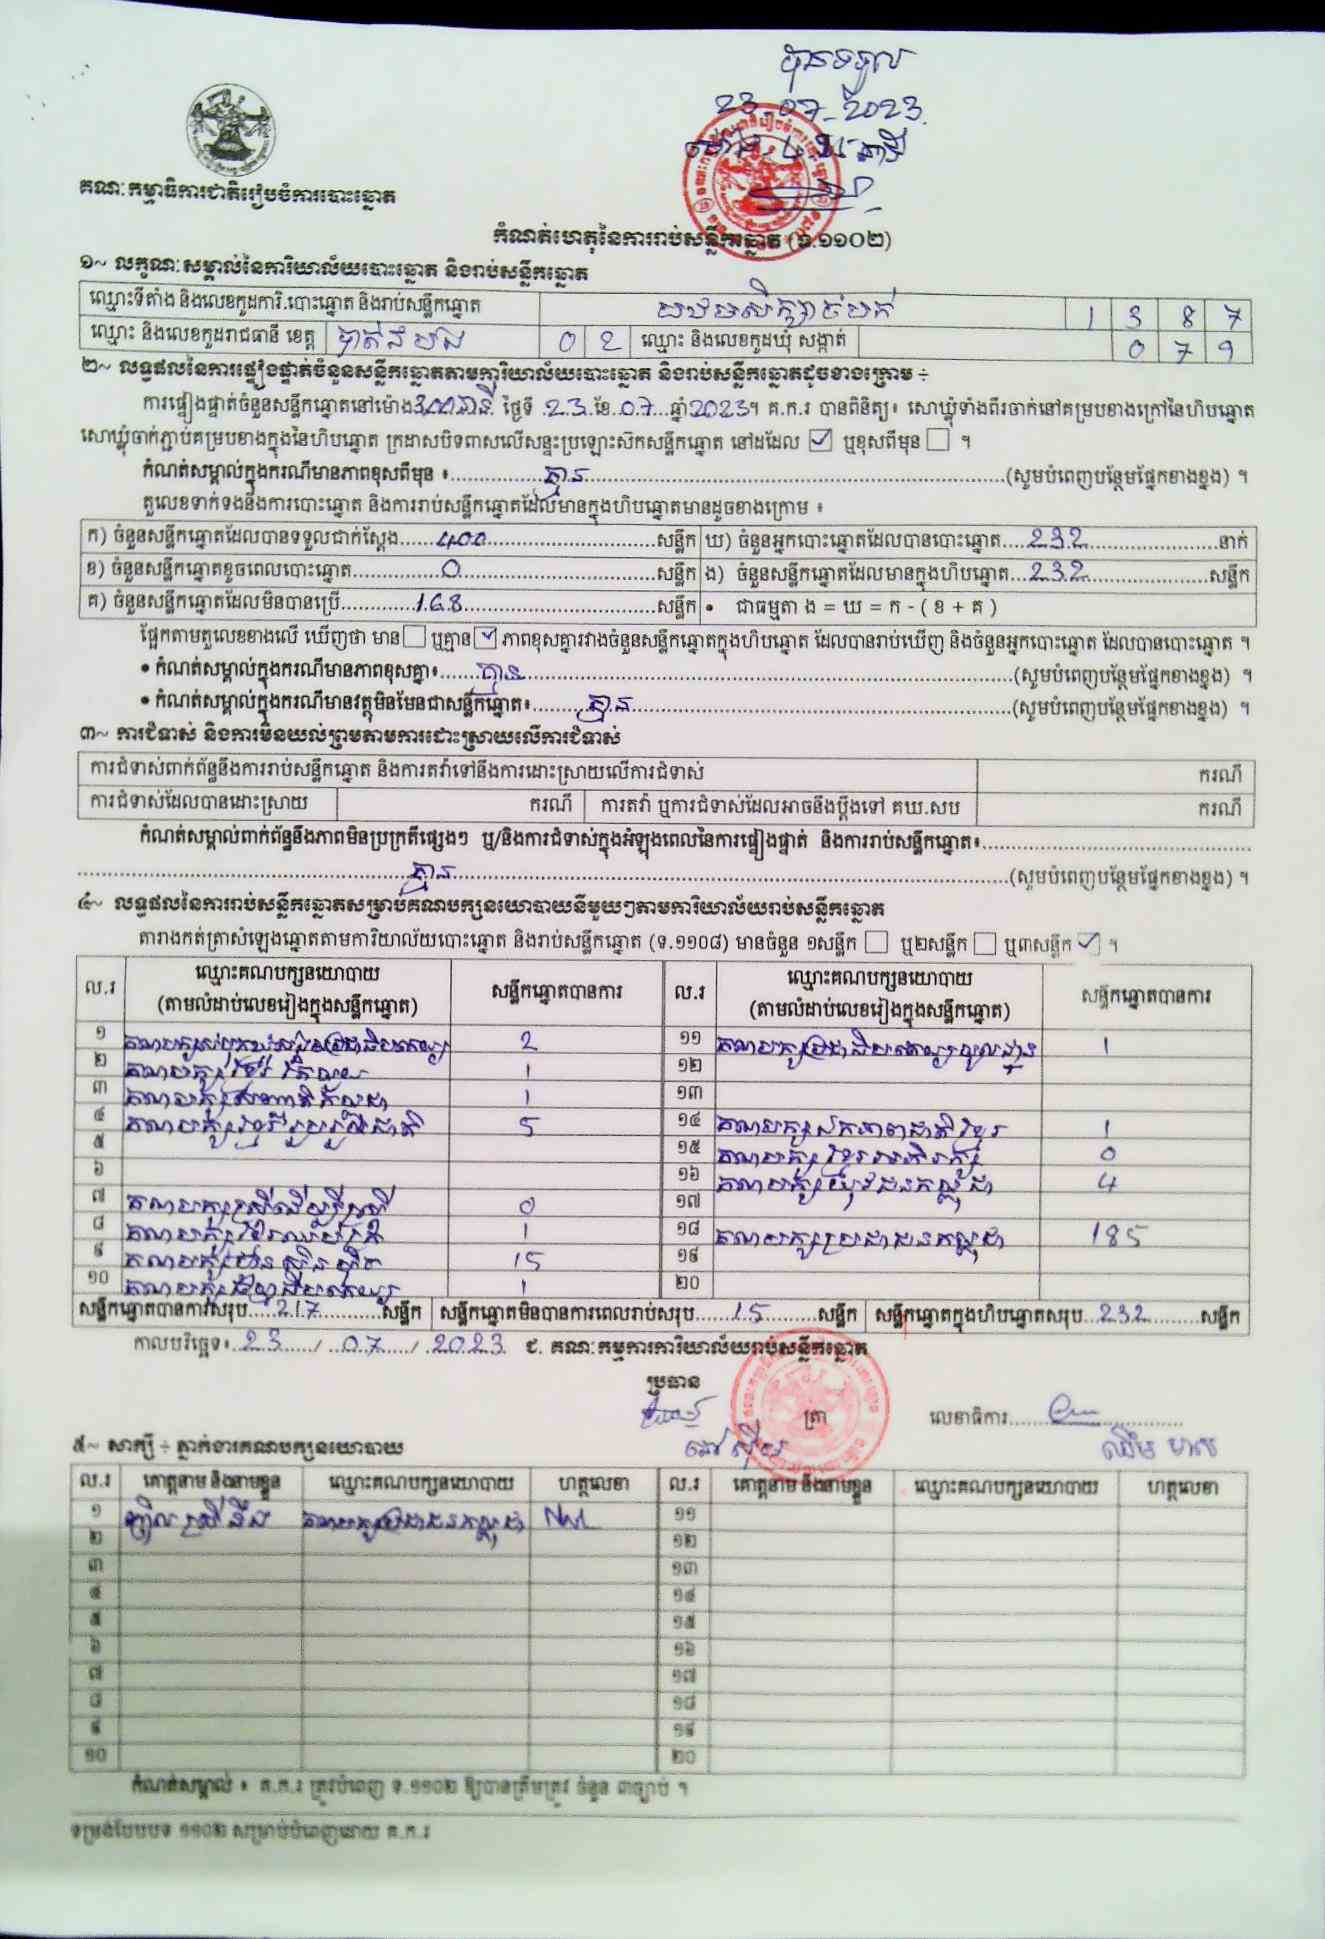 បានទទួល
23.07.2023
គណៈកម្មាធិការជាតិរៀបចំការបោះឆ្នោត
កំណត់ហេតុនៃការរាប់សន្លឹកឆ្នោត (ទ.១១០២)
១~ លក្ខណៈសម្គាល់នៃការិយាល័យបោះឆ្នោត និងរាប់សន្លឹកឆ្នោត
ឈ្មោះទីតាំង និងលេខកូដការិ.បោះឆ្នោត និងរាប់សន្លឹកឆ្នោត បឋមសិក្សា 1 3 8 7
ឈ្មោះ និងលេខកូដរាជធានី ខេត្ត បាត់ដំបង 0 2 ឈ្មោះ និងលេខកូដឃុំ សង្កាត់ 0 7 9
២~ លទ្ធផលនៃការផ្ទៀងផ្ទាត់ចំនួនសន្លឹកឆ្នោតតាមការិយាល័យបោះឆ្នោត និងរាប់សន្លឹកឆ្នោតដូចខាងក្រោម ÷
ការផ្ទៀងផ្ទាត់ចំនួនសន្លឹកឆ្នោតនៅម៉ោង ថ្ងៃទី 23 ខែ 07 ឆ្នាំ 2023។ គ.ក.រ បានពិនិត្យ៖ សោឃ្លុំទាំងពីរចាក់នៅគម្របខាងក្រៅនៃហិបឆ្នោត
សោឃ្លុំចាក់ភ្ជាប់គម្របខាងក្នុងនៃហិបឆ្នោត ក្រដាសបិទពាសលើសន្ទះប្រឡោះសិកសន្លឹកឆ្នោត នៅដដែល ☑ ឬខុសពីមុន ☐ ។
កំណត់សម្គាល់ក្នុងករណីមានភាពខុសពីមុន ៖ គ្មាន (សូមបំពេញបន្ថែមផ្នែកខាងខ្នង) ។
តួលេខទាក់ទងនឹងការបោះឆ្នោត និងការរាប់សន្លឹកឆ្នោតដែលមានក្នុងហិបឆ្នោតមានដូចខាងក្រោម ៖
ក) ចំនួនសន្លឹកឆ្នោតដែលបានទទួលជាក់ស្តែង 400 សន្លឹក ឃ) ចំនួនអ្នកបោះឆ្នោតដែលបានបោះឆ្នោត 232 នាក់
ខ) ចំនួនសន្លឹកឆ្នោតខូចពេលបោះឆ្នោត 0 សន្លឹក ង) ចំនួនសន្លឹកឆ្នោតដែលមានក្នុងហិបឆ្នោត 232 សន្លឹក
គ) ចំនួនសន្លឹកឆ្នោតដែលមិនបានប្រើ 168 សន្លឹក • ជាធម្មតា ង = ឃ = ក - ( ខ + គ )
ផ្អែកតាមតួលេខខាងលើ ឃើញថា មាន ☐ ឬគ្មាន ☑ ភាពខុសគ្នារវាងចំនួនសន្លឹកឆ្នោតក្នុងហិបឆ្នោត ដែលបានរាប់ឃើញ និងចំនួនអ្នកបោះឆ្នោត ដែលបានបោះឆ្នោត ។
• កំណត់សម្គាល់ក្នុងករណីមានភាពខុសគ្នា៖ គ្មាន (សូមបំពេញបន្ថែមផ្នែកខាងខ្នង) ។
• កំណត់សម្គាល់ក្នុងករណីមានវត្ថុមិនមែនជាសន្លឹកឆ្នោត៖ គ្មាន (សូមបំពេញបន្ថែមផ្នែកខាងខ្នង) ។
៣~ ការជំទាស់ និងការមិនយល់ព្រមតាមការដោះស្រាយលើការជំទាស់
ការជំទាស់ពាក់ព័ន្ធនឹងការរាប់សន្លឹកឆ្នោត និងការតវ៉ាទៅនឹងការដោះស្រាយលើការជំទាស់ ករណី
ការជំទាស់ដែលបានដោះស្រាយ ករណី ការតវ៉ា ឬការជំទាស់ដែលអាចនឹងប្តឹងទៅ គឃ.សប ករណី
កំណត់សម្គាល់ពាក់ព័ន្ធនឹងភាពមិនប្រក្រតីផ្សេងៗ ឬ/និងការជំទាស់ក្នុងអំឡុងពេលនៃការផ្ទៀងផ្ទាត់ និងការរាប់សន្លឹកឆ្នោត៖
គ្មាន (សូមបំពេញបន្ថែមផ្នែកខាងខ្នង) ។
៤~ លទ្ធផលនៃការរាប់សន្លឹកឆ្នោតសម្រាប់គណបក្សនយោបាយនីមួយៗតាមការិយាល័យរាប់សន្លឹកឆ្នោត
តារាងកត់ត្រាសំឡេងឆ្នោតតាមការិយាល័យបោះឆ្នោត និងរាប់សន្លឹកឆ្នោត (ទ.១១០៨) មានចំនួន ១សន្លឹក ☐ ឬ២សន្លឹក ☐ ឬ៣សន្លឹក ☑ ។
ល.រ ឈ្មោះគណបក្សនយោបាយ (តាមលំដាប់លេខរៀងក្នុងសន្លឹកឆ្នោត) សន្លឹកឆ្នោតបានការ ល.រ ឈ្មោះគណបក្សនយោបាយ (តាមលំដាប់លេខរៀងក្នុងសន្លឹកឆ្នោត) សន្លឹកឆ្នោតបានការ
១ គណបក្ស 2 ១១ គណបក្សប្រជាធិបតេយ្យមូលដ្ឋាន 1
២ គណបក្សខ្មែរ 1 ១២
៣ គណបក្ស 1 ១៣
៤ គណបក្សខ្មែររួបរួមជាតិ 5 ១៤ គណបក្សឯកភាពជាតិខ្មែរ 1
៥ ១៥ គណបក្សខ្មែរអភិរក្ស 0
៦ ១៦ គណបក្សយុវជនកម្ពុជា 4
៧ គណបក្សស្រ្តីដើម្បីស្ត្រី 0 ១៧
៨ គណបក្ស 1 ១៨ គណបក្សប្រជាជនកម្ពុជា 185
៩ គណបក្សហ្វ៊ុនស៊ិនប៉ិច 15 ១៩
១០ គណបក្ស 1 ២០
សន្លឹកឆ្នោតបានការសរុប 217 សន្លឹក សន្លឹកឆ្នោតមិនបានការពេលរាប់សរុប 15 សន្លឹក សន្លឹកឆ្នោតក្នុងហិបឆ្នោតសរុប 232 សន្លឹក
កាលបរិច្ឆេទ៖ 23 / 07 / 2023 ជ. គណៈកម្មការការិយាល័យរាប់សន្លឹកឆ្នោត
ប្រធាន
ត្រា លេខាធិការ
៥~ សាក្សី ÷ ភ្នាក់ងារគណបក្សនយោបាយ
ល.រ គោត្តនាម និងនាមខ្លួន ឈ្មោះគណបក្សនយោបាយ ហត្ថលេខា ល.រ គោត្តនាម និងនាមខ្លួន ឈ្មោះគណបក្សនយោបាយ ហត្ថលេខា
១ គណបក្សប្រជាជនកម្ពុជា ១១
២ ១២
៣ ១៣
៤ ១៤
៥ ១៥
៦ ១៦
៧ ១៧
៨ ១៨
៩ ១៩
១០ ២០
កំណត់សម្គាល់ ៖ គ.ក.រ ត្រូវបំពេញ ទ.១១០២ ឱ្យបានត្រឹមត្រូវ ចំនួន ៣ច្បាប់ ។
ទម្រង់បែបបទ ១១០២ សម្រាប់បំពេញដោយ គ.ក.រ